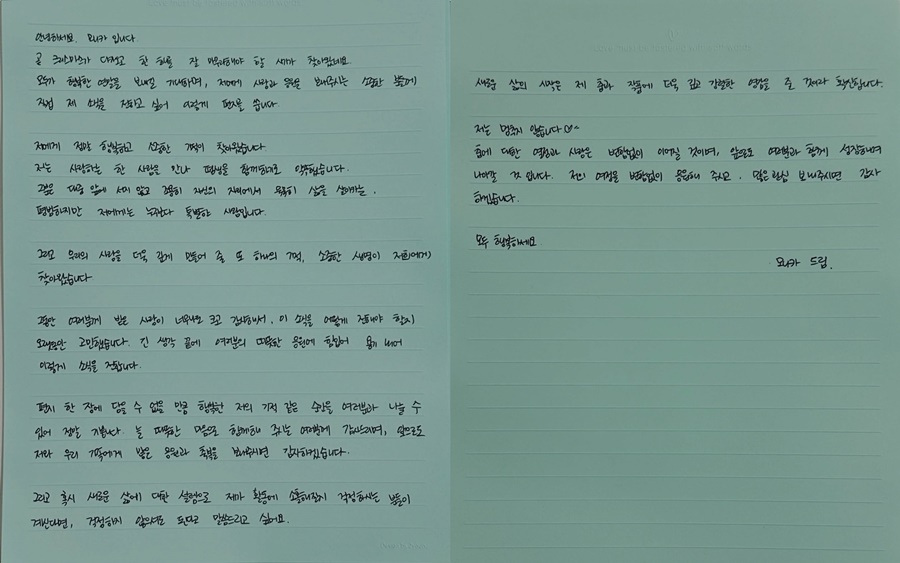 안녕하세요. 모니카 입니다.
곧 크리스마스가 다가오고 한 해를 잘 마무리해야 할 시기가 찾아왔네요.
모두가 행복한 연말을 보내길 기대하며, 저에게 사랑과 응원을 보내주시는 소중한 분들에게
직접 제 소식을 전하고 싶어 이렇게 편지를 씁니다.
저에게 정말 행복하고 소중한 기적이 찾아왔습니다
저는 사랑하는 한 사람을 만나 평생을 함께하기로 약속했습니다.
그분은 대중 앞에 서지 않고 조용히 자신의 자리에서 묵묵히 삶을 살아가는,
평범하지만 저에게는 누구보다 특별한 사람입니다.
그리고 우리의 사랑을 더욱 깊게 만들어 줄 또 하나의 기적, 소중한 생명이 저희에게
찾아왔습니다
그동안 여러분께 받은 사랑이 너무나도 크고 감사해서, 이 소식을 어떻게 전해야 할지
오랫동안 고민했습니다. 긴 생각 끝에 여러분의 따뜻한 응원에 힘입어 용기 내어
이렇게 소식을 전합니다.
편지 한 장에 담을 수 없을 만큼 행복한 저의 기적 같은 순간을 여러분과 나눌 수
있어 정말 기쁩니다. 늘 따뜻한 마음으로 함께해 주시는 여러분께 감사드리며, 앞으로도
저와 우리 가족에게 많은 응원과 축복을 보내주시면 감사하겠습니다.
그리고 혹시 새로운 삶에 대한 설렘으로 제가 활동에 소홀해질까 걱정하시는 분들이
계신다면, 걱정하지 않으셔도 된다고 말씀드리고 싶어요.
새로운 삶의 시작은 제 춤과 작품에 더욱 깊고 강렬한 영감을 줄 것이라 확신합니다.
저는 멈추지 않습니다♡^
춤에 대한 열정과 사랑은 변함없이 이어질 것이며, 앞으로도 여러분과 함께 성장하며
나아갈 것 입니다. 저의 여정을 변함없이 응원해 주시고, 많은 관심 보내주시면 감사
하겠습니다.
모두 행복하세요
모니카 드림.